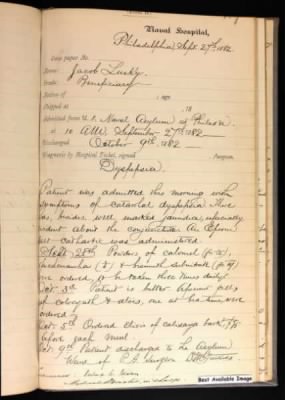 Naval Hospital,
Philadelphia, Sept. 27th, 1882.
Case paper No.
Name: Jacob Lusky.
Grade: Beneficiary
Native of ; age,
Shipped at , 18
Admitted from U.S. Naval Asylum at Philada
at 10 A.M. September 27th 1882
Discharged October 9th, 1882
Diagnosis by Hospital Ticket, signed Surgeon.
Dyspepsia
Patient was admitted this morning with
symptoms of catarrhal dyspepsia There
was, besides, well marked jaundice, especially
evident about the conjunctiva An Epsom
salt cathartic was administered
Sept. 28th Powders of calomel
& bismuth subnitrate
were ordered, to be taken three times daily
Oct. 3rd Patient is better
of colocynth & aloes, one at bed time, were
ordered
Oct. 5th Ordered elixir of calisaya bark
before each meal.
Oct. 9th Patient discharged to the Asylum
Ward of P. A. Surgeon
Best Available Image